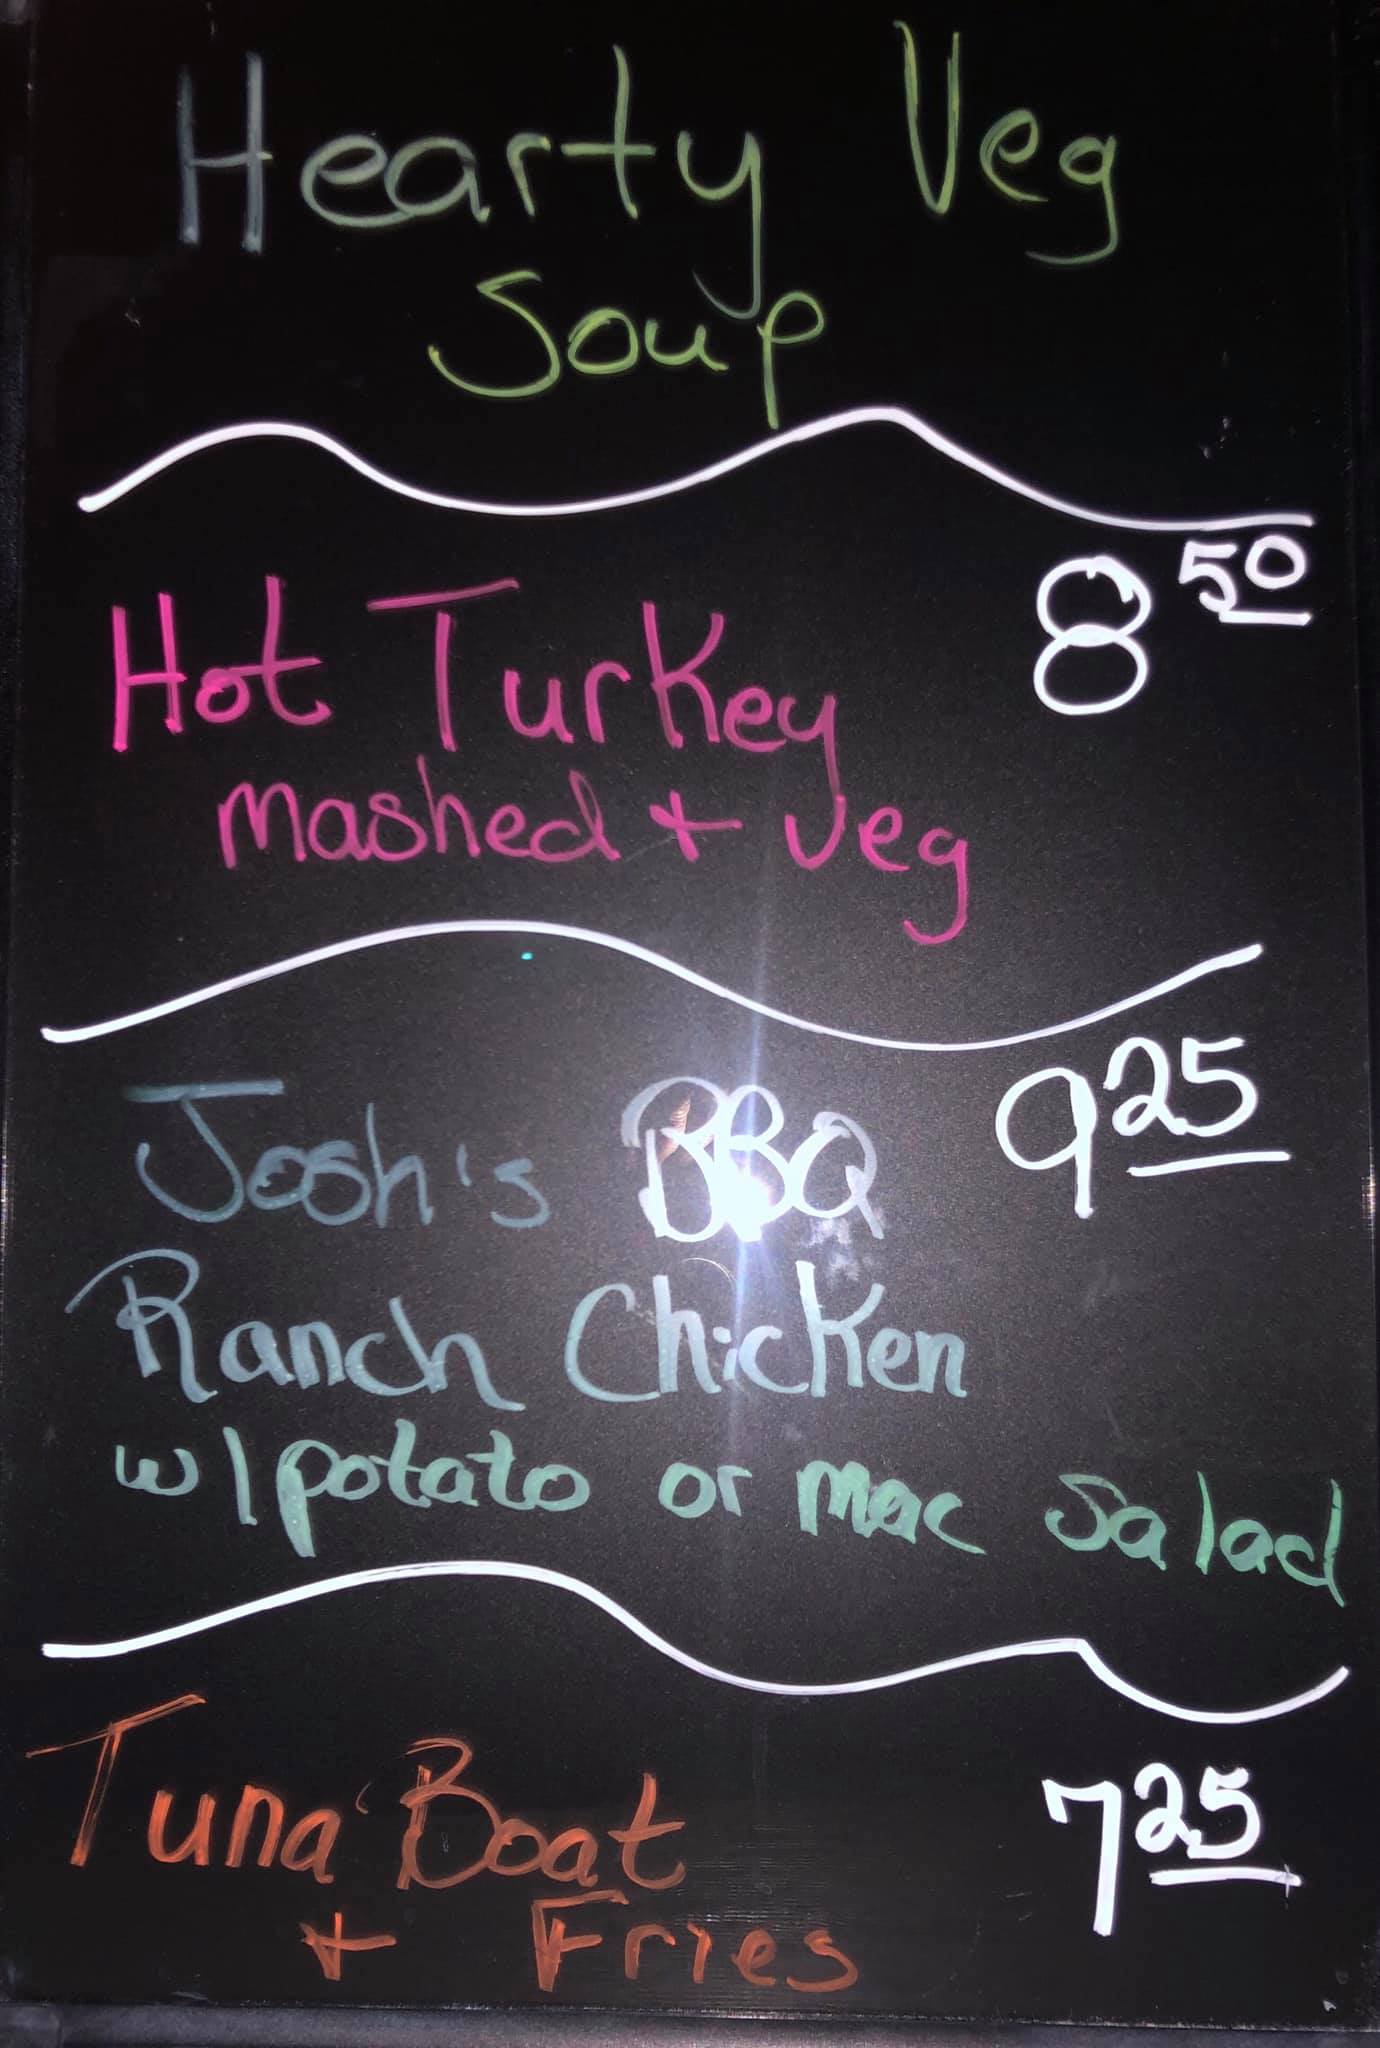 Hearty Veg
Soup
8 50
Hot Turkey
mashed + veg
9 25
Josh's BBQ
Ranch Chicken
w/potato or mac salad
Tuna Boat
7 25
+ Fries